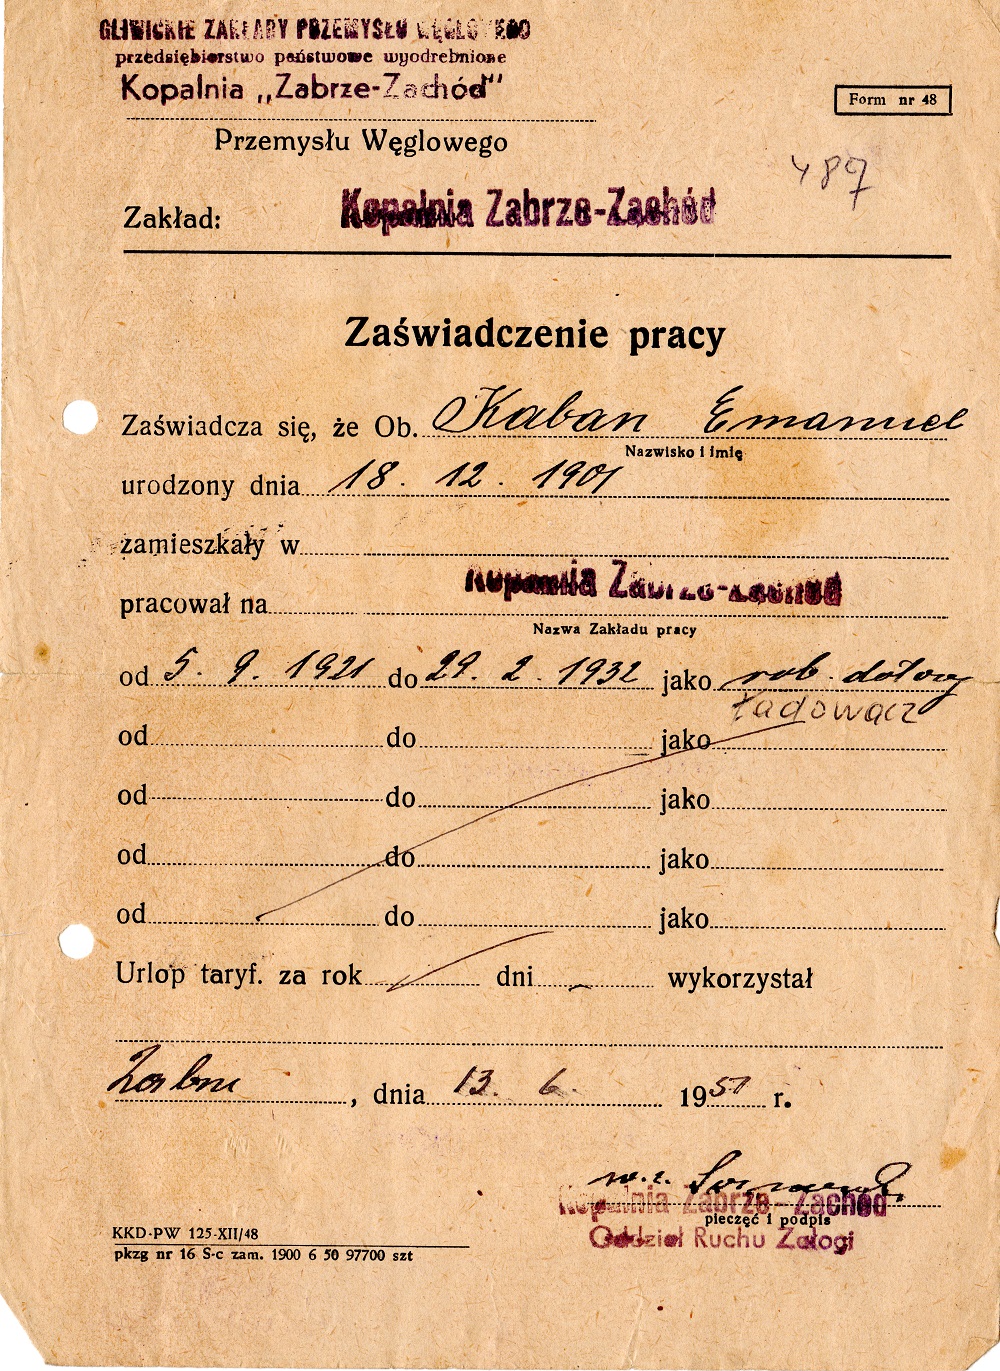 GLIWICKIE ZAKŁADY PRZEMYSŁU WĘGLOWEGO
przedsiębiorstwo państwowe wyodrębnione
Kopalnia „Zabrze-Zachód"
Form nr 48
Przemysłu Węglowego
487
Zakład: Kopalnia Zabrze-Zachód
Zaświadczenie pracy
Zaświadcza się, że Ob. Kaban Emanuel
Nazwisko i imię
urodzony dnia 18. 12. 1901
zamieszkały w
pracował na Kopalnia Zabrze-Zachód
Nazwa Zakładu pracy
od 5. 9. 1921 do 29. 2. 1932 jako rob. dołowy
ładowacz
od do jako
od do jako
od do jako
od do jako
Urlop taryf. za rok dni - wykorzystał
Zabrze, dnia 13. 6. 1951 r.
w.z.
Kopalnia Zabrze-Zachód
pieczęć i podpis
Oddział Ruchu Załogi
KKD-PW 125-XII/48
pkzg nr 16 S-c zam. 1900 6 50 97700 szt